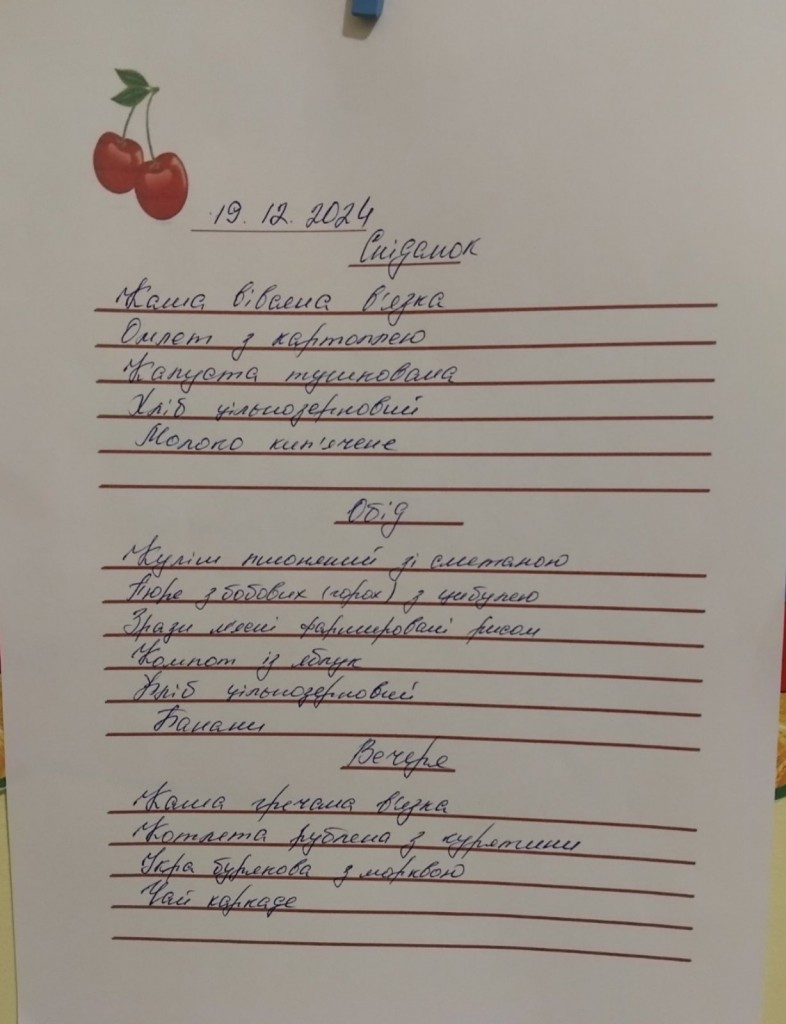 19.12.2024
Сніданок
Каша вівсяна в'язка
Омлет з картоплею
Капуста тушкована
Хліб цільнозерновий
Молоко кип'ячене
Обід
Куліш пшоняний зі сметаною
Пюре з бобових (горох) з цибулею
Зрази м'ясні фаршировані рисом
Компот із яблук
Хліб цільнозерновий
Банани
Вечеря
Каша гречана в'язка
Котлета рублена з курятини
Ікра бурякова з морквою
Чай каркаде